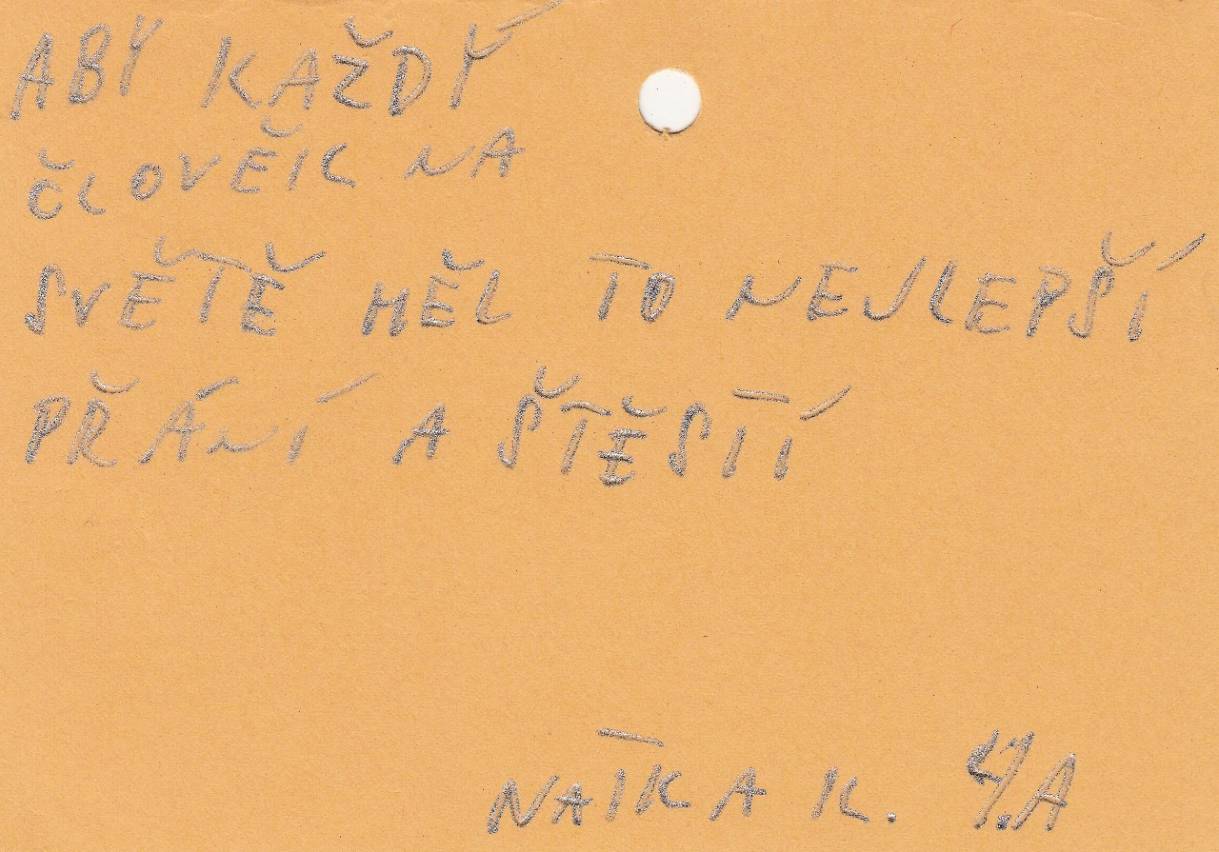 ABY KAŽDÝ
ČLOVĚK NA
SVĚTĚ MĚL TO NEJLEPŠÍ
PŘÁNÍ A ŠTĚSTÍ
NAŤKA K. 4.A